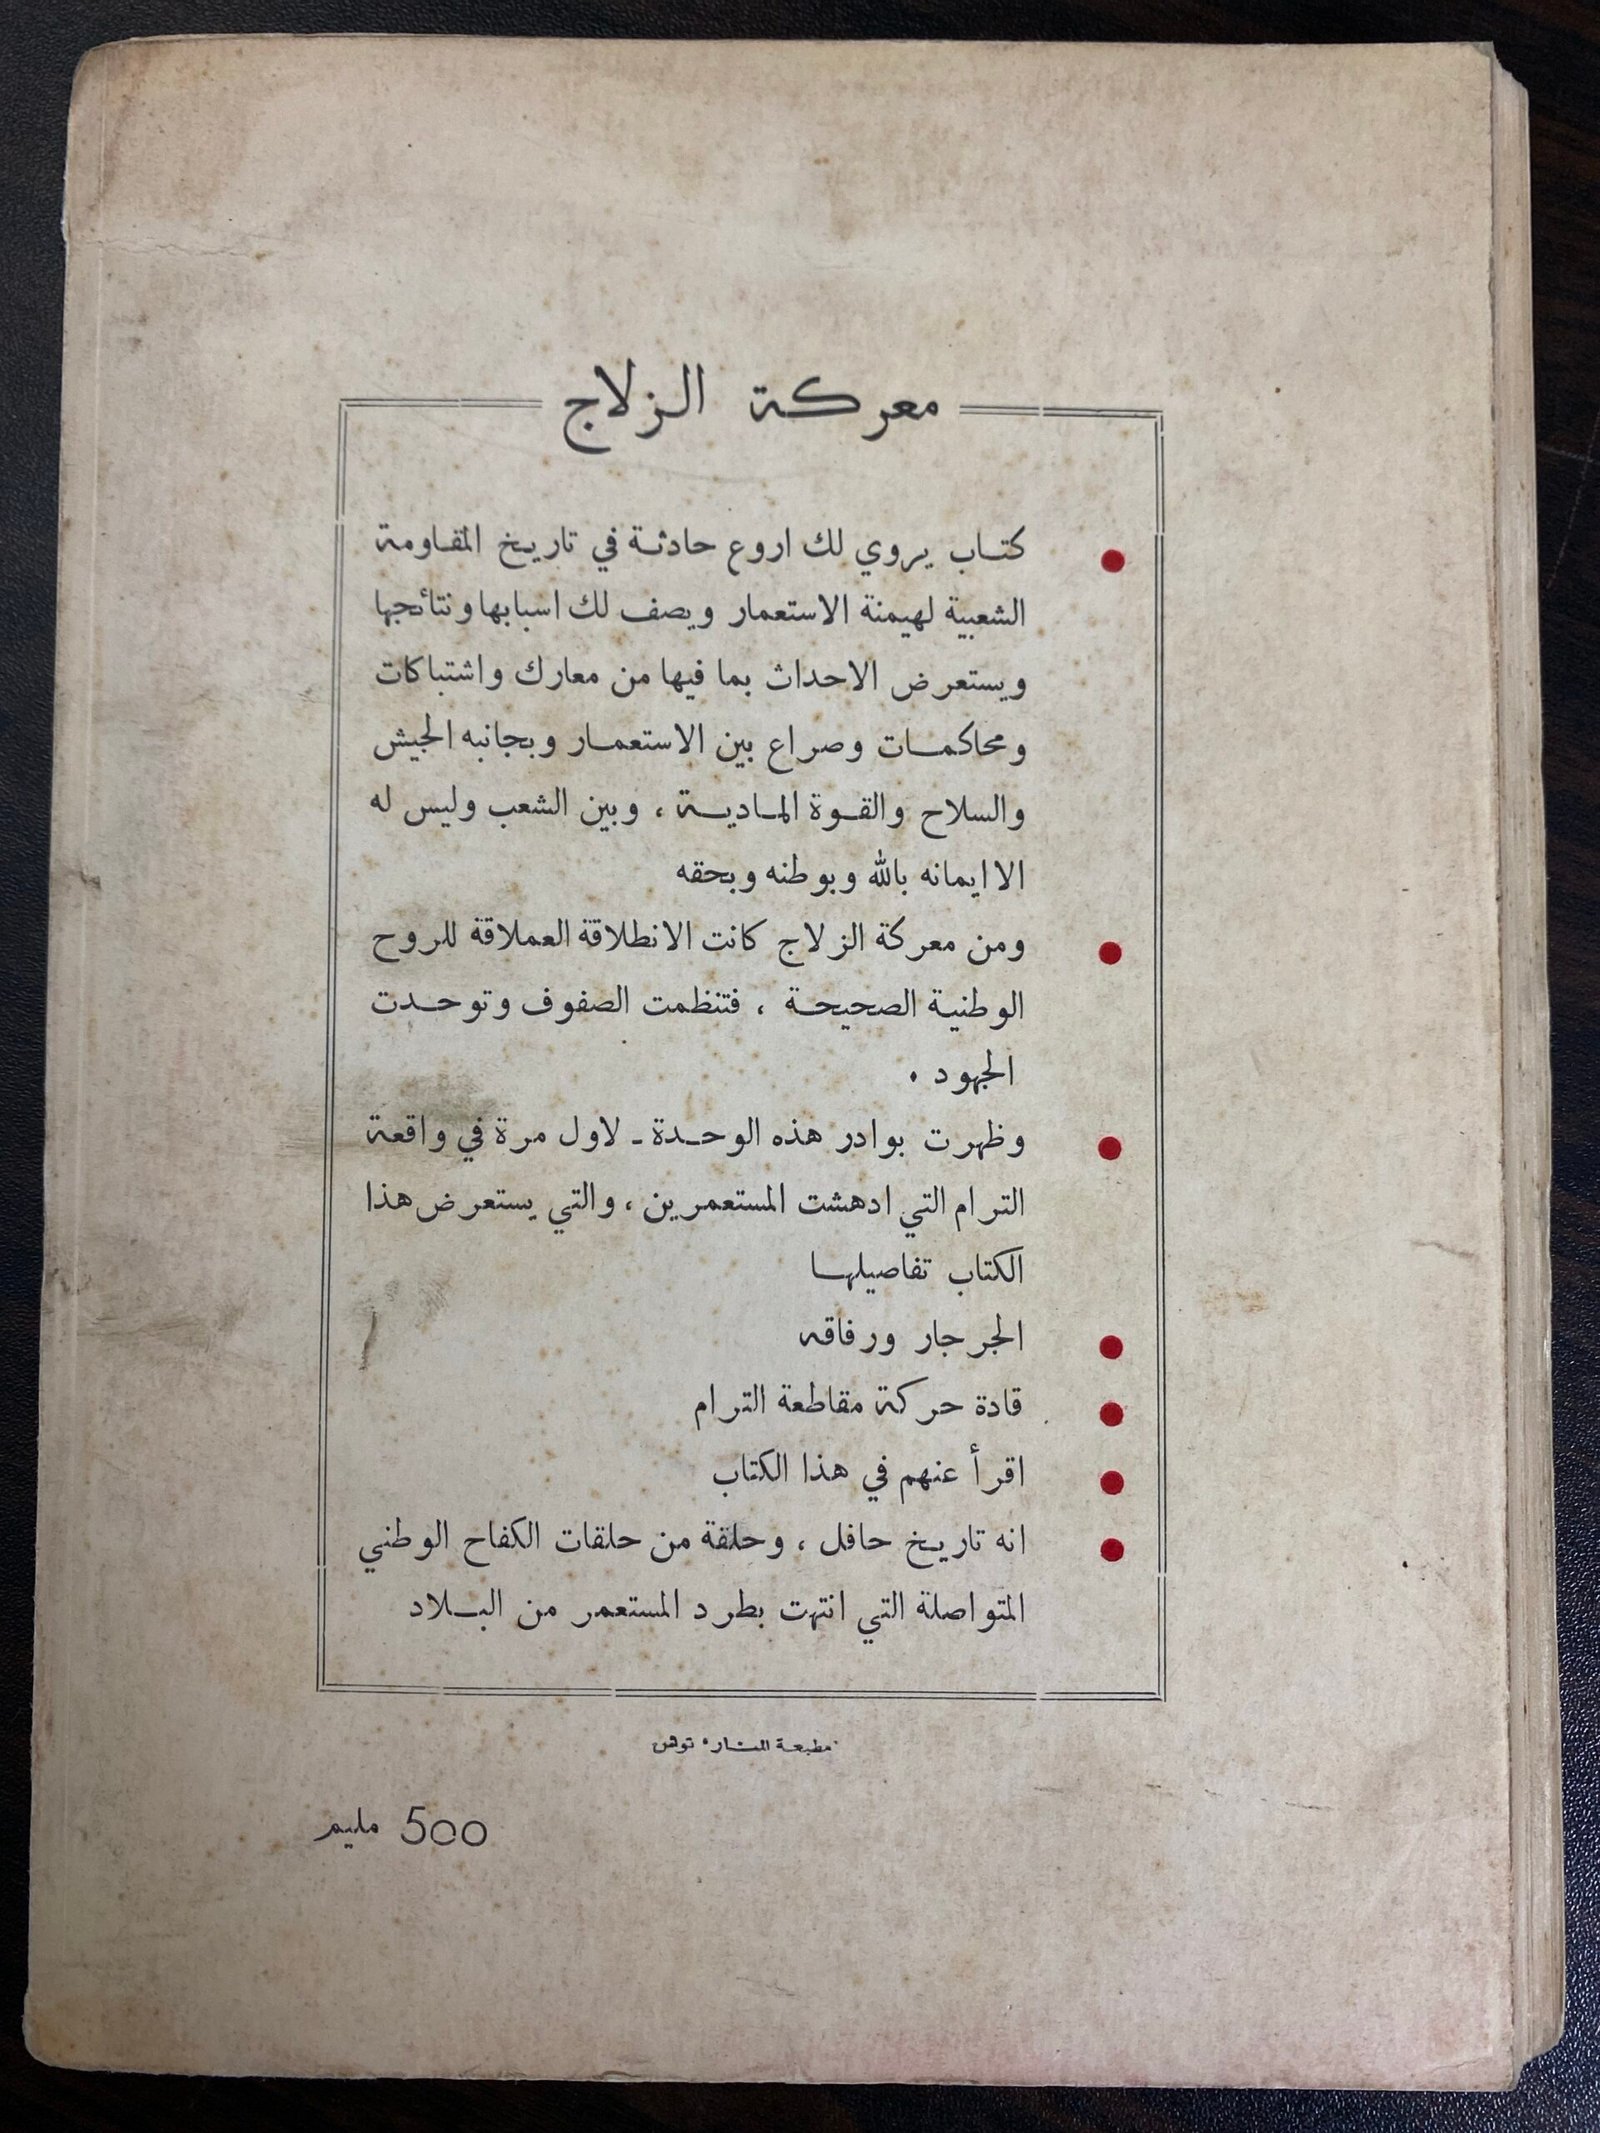 معركة الزلاج
كتاب يروي لك اروع حادثة في تاريخ المقاومة
الشعبية لهيمنة الاستعمار ويصف لك اسبابها ونتائجها
ويستعرض الاحداث بما فيها من معارك واشتباكات
ومحاكمات وصراع بين الاستعمار وبجانبه الجيش
والسلاح والقوة المادية ، وبين الشعب وليس له
الا ايمانه بالله وبوطنه وبحقه
ومن معركة الزلاج كانت الانطلاقة العملاقة للروح
الوطنية الصحيحة ، فتنظمت الصفوف وتوحدت
الجهود .
وظهرت بوادر هذه الوحدة - لاول مرة في واقعة
الترام التي ادهشت المستعمرين ، والتي يستعرض هذا
الكتاب تفاصيلها
الجرجار ورفاقه
قادة حركة مقاطعة الترام
اقرأ عنهم في هذا الكتاب
انه تاريخ حافل ، وحلقة من حلقات الكفاح الوطني
المتواصلة التي انتهت بطرد المستعمر من البلاد
مطبعة المنار • تونس
500 مليم